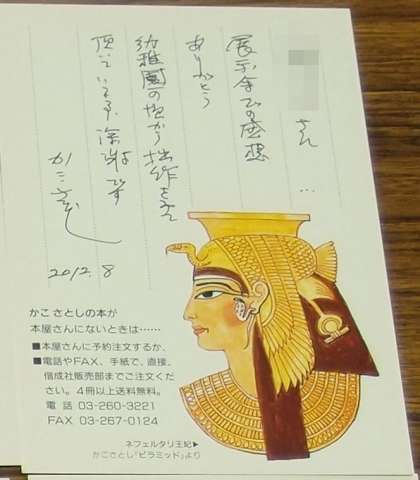 さん…
展示会での感想
ありがとう
幼稚園の頃から拙作をみて
頂いている事、深謝です
かこさとし
2012.8
かこ さとしの本が
本屋さんにないときは……
■本屋さんに予約注文するか、
■電話やFAX、手紙で、直接、
偕成社販売部までご注文くだ
さい。4冊以上送料無料。
電 話 03-260-3221
FAX 03-267-0124
ネフェルタリ王妃▶
かこさとし「ピラミッド」より